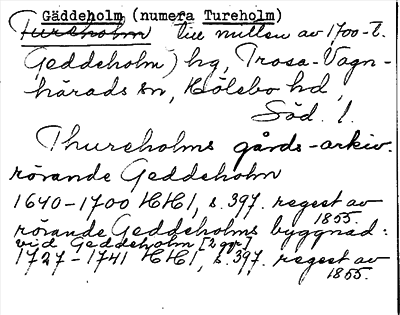 Gäddeholm (numera Tureholm)
Tureholm till mitten av 1700-t.
Geddeholm) hg, Trosa-Vagn-
härads sn, Hölebo hd,
Söd. l.
Thureholms gårds-arkiv.
rörande Geddeholm
1640-1700 HH1, s. 397. regest av
1855.
rörande Geddeholms byggnad:
vid Geddeholm [2 ggr]
1727-1741 HH1, s. 397. regest av
1855.